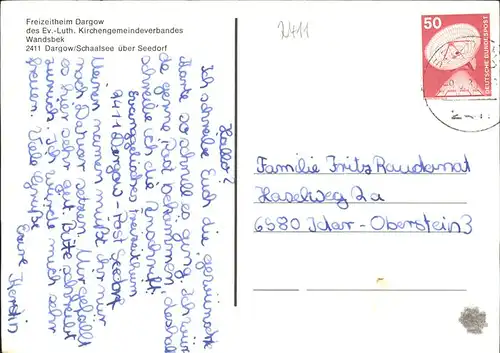 Freizeitheim Dargow
des Ev.-Luth. Kirchengemeindeverbandes
Wandsbek
2411 Dargow/Schaalsee über Seedorf
2411
50
DEUTSCHE BUNDESPOST
Hallo!
Ich schreibe Euch die gewünschte
Karte so schnell es ging. Ich würde
gerne Post bekommen, deshalb
schreibe ich die Anschrift:
Evangelisches Freizeitheim
2411 Dargow - Post Seedorf
Meinen Namen müßt ihr
nach Dargow setzen. Mir gefällt
es hier sehr gut. Bitte schreibt
zurück. Ich würde mich sehr
freuen. Viele Grüße
Eure Kerstin
Familie Fritz Raudernat
Haselweg 2a
6580 Idar-Oberstein 3